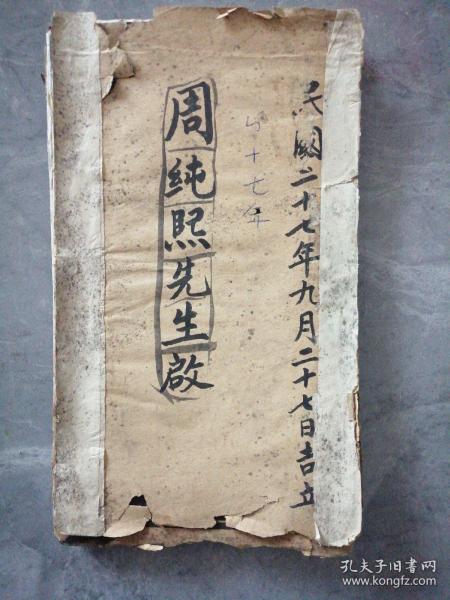 民國二十七年九月二十七日吉立
十七年
周純熙先生啟
孔夫子旧书网
www.kongfz.com